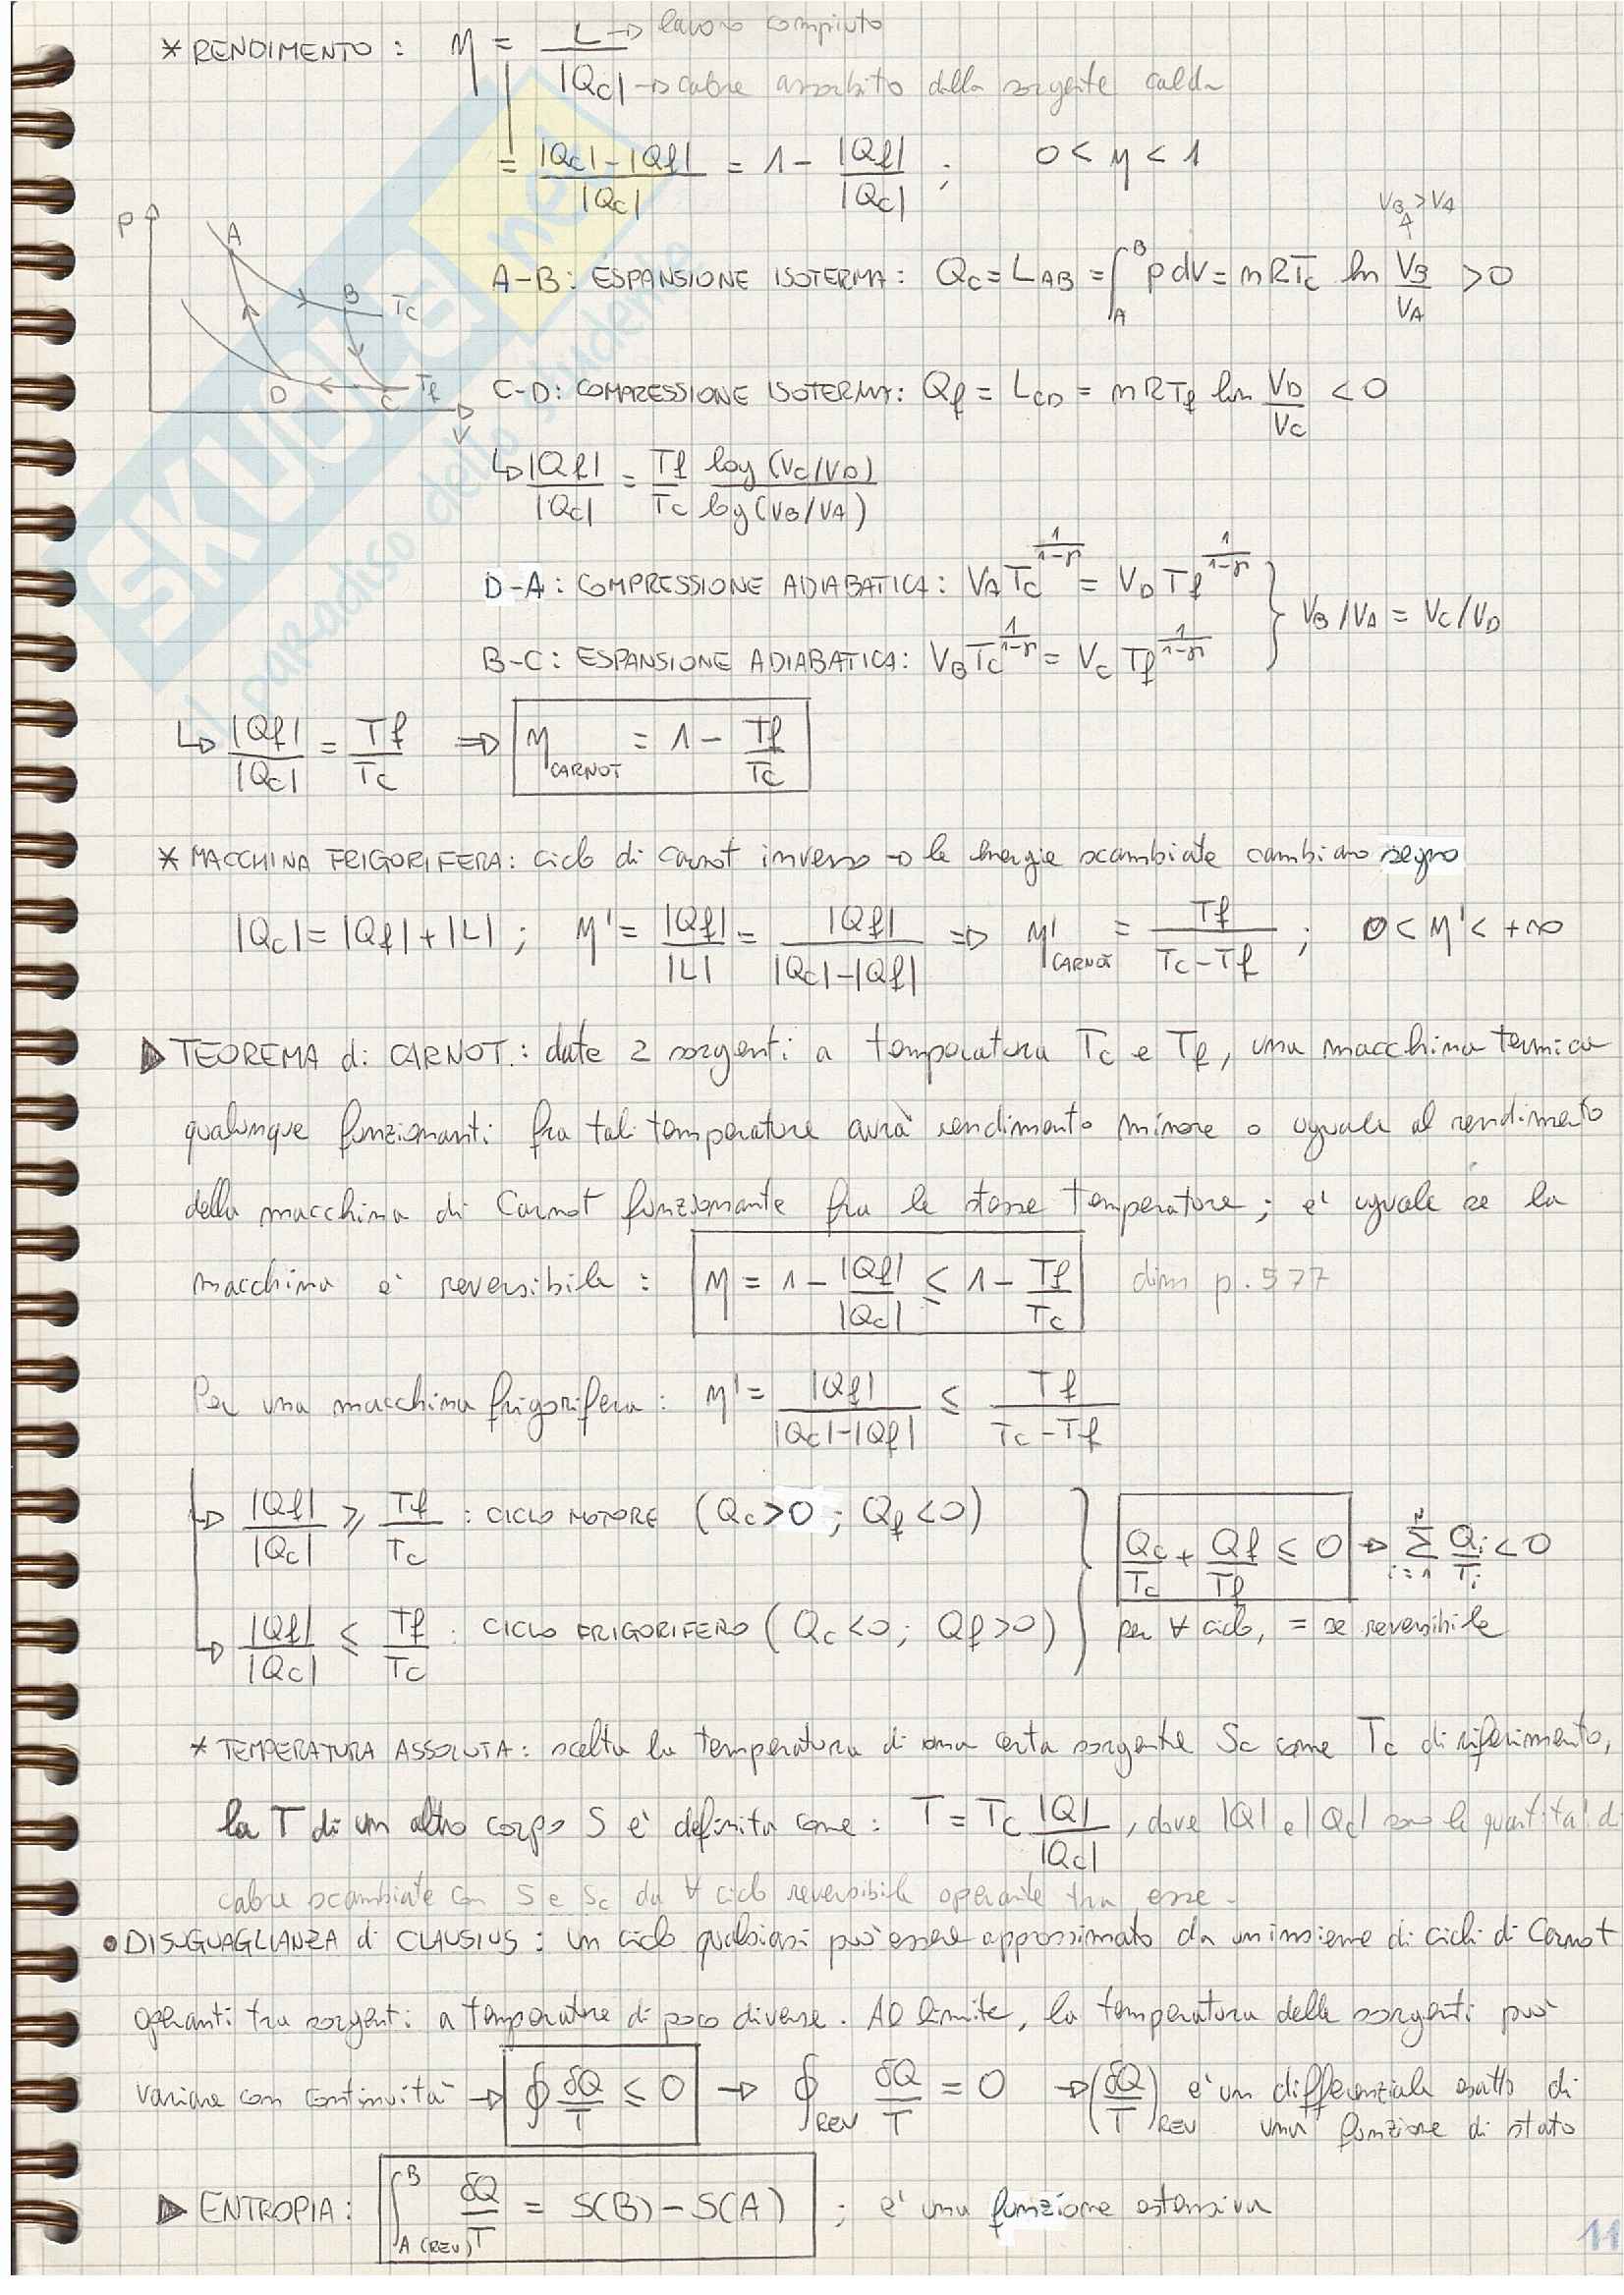 * RENDIMENTO : η = L → lavoro compiuto
|Qc| → calore assorbito dalla sorgente calda
= |Qc|-|Qf| / |Qc| = 1 - |Qf| / |Qc| ; 0 < η < 1
VB > VA
P A B Tc D C Tf V
A-B: ESPANSIONE ISOTERMA: Qc = L AB = ∫_A^B p dV = nRTc ln VB/VA > 0
C-D: COMPRESSIONE ISOTERMA: Qf = L CD = nRTf ln VD/VC < 0
↳ |Qf|/|Qc| = Tf/Tc log (Vc/VD) / log (VB/VA)
D-A: COMPRESSIONE ADIABATICA: VA Tc^(1/(1-γ)) = VD Tf^(1/(1-γ))
B-C: ESPANSIONE ADIABATICA: VB Tc^(1/(1-γ)) = Vc Tf^(1/(1-γ)) } VB/VA = Vc/VD
↳ |Qf|/|Qc| = Tf/Tc ⇒ η CARNOT = 1 - Tf/Tc
* MACCHINA FRIGORIFERA: ciclo di Carnot inverso → le energie scambiate cambiano segno
|Qc| = |Qf| + |L| ; η' = |Qf|/|L| = |Qf| / |Qc|-|Qf| ⇒ η' CARNOT = Tf / Tc-Tf ; 0 < η' < +∞
▶ TEOREMA di CARNOT: date 2 sorgenti a temperatura Tc e Tf, una macchina termica
qualunque funzionanti fra tali temperature avrà rendimento minore o uguale al rendimento
della macchina di Carnot funzionante fra le stesse temperature; è uguale se la
macchina è reversibile : η = 1 - |Qf|/|Qc| ≤ 1 - Tf/Tc dim p. 577
Per una macchina frigorifera: η' = |Qf| / |Qc|-|Qf| ≤ Tf / Tc-Tf
↳ |Qf|/|Qc| ≥ Tf/Tc : CICLO MOTORE (Qc>0 ; Qf<0)
↳ |Qf|/|Qc| ≤ Tf/Tc : CICLO FRIGORIFERO (Qc<0 ; Qf>0)
} Qc/Tc + Qf/Tf ≤ 0 → Σ_{i=1}^N Qi/Ti < 0
per ∀ ciclo, = se reversibile
* TEMPERATURA ASSOLUTA: scelta la temperatura di una certa sorgente Sc come Tc di riferimento,
la T di un altro corpo S è definita come : T = Tc |Q|/|Qc| , dove |Q| e |Qc| sono le quantità di
calore scambiate con S e Sc da ∀ ciclo reversibile operante tra esse.
• DISUGUAGLIANZA di CLAUSIUS: un ciclo qualsiasi può essere approssimato da un insieme di cicli di Carnot
operanti tra sorgenti a temperature di poco diverse. Al limite, la temperatura delle sorgenti può
variare con continuità → ∮ δQ/T ≤ 0 → ∮_REV δQ/T = 0 → (δQ/T)_REV è un differenziale esatto di
una funzione di stato
▶ ENTROPIA: ∫_A (REV)^B δQ/T = S(B) - S(A) ; è una funzione estensiva
11
SKUOLA.net
il paradiso dello studente